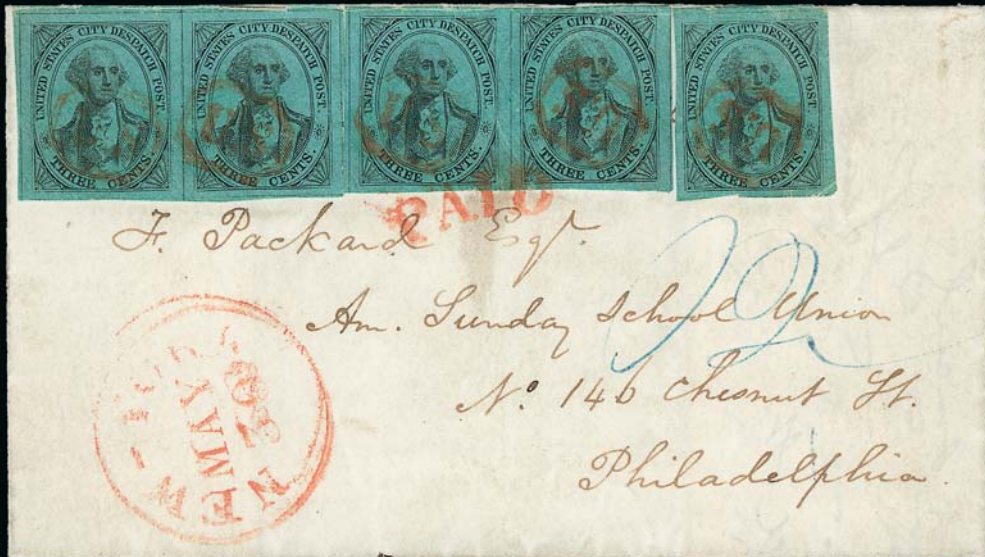 UNITED STATES CITY DESPATCH POST.
THREE CENTS.
UNITED STATES CITY DESPATCH POST.
THREE CENTS.
UNITED STATES CITY DESPATCH POST.
THREE CENTS.
UNITED STATES CITY DESPATCH POST.
THREE CENTS.
UNITED STATES CITY DESPATCH POST.
THREE CENTS.
PAID
F. Packard Esqr.
Am. Sunday School Union
No. 146 Chesnut St.
Philadelphia
NEW-YORK
MAY